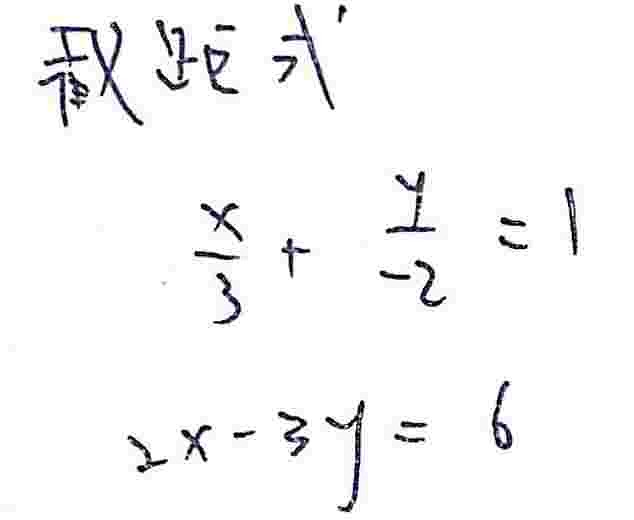 截距式
x/3 + y/-2 = 1
2x - 3y = 6